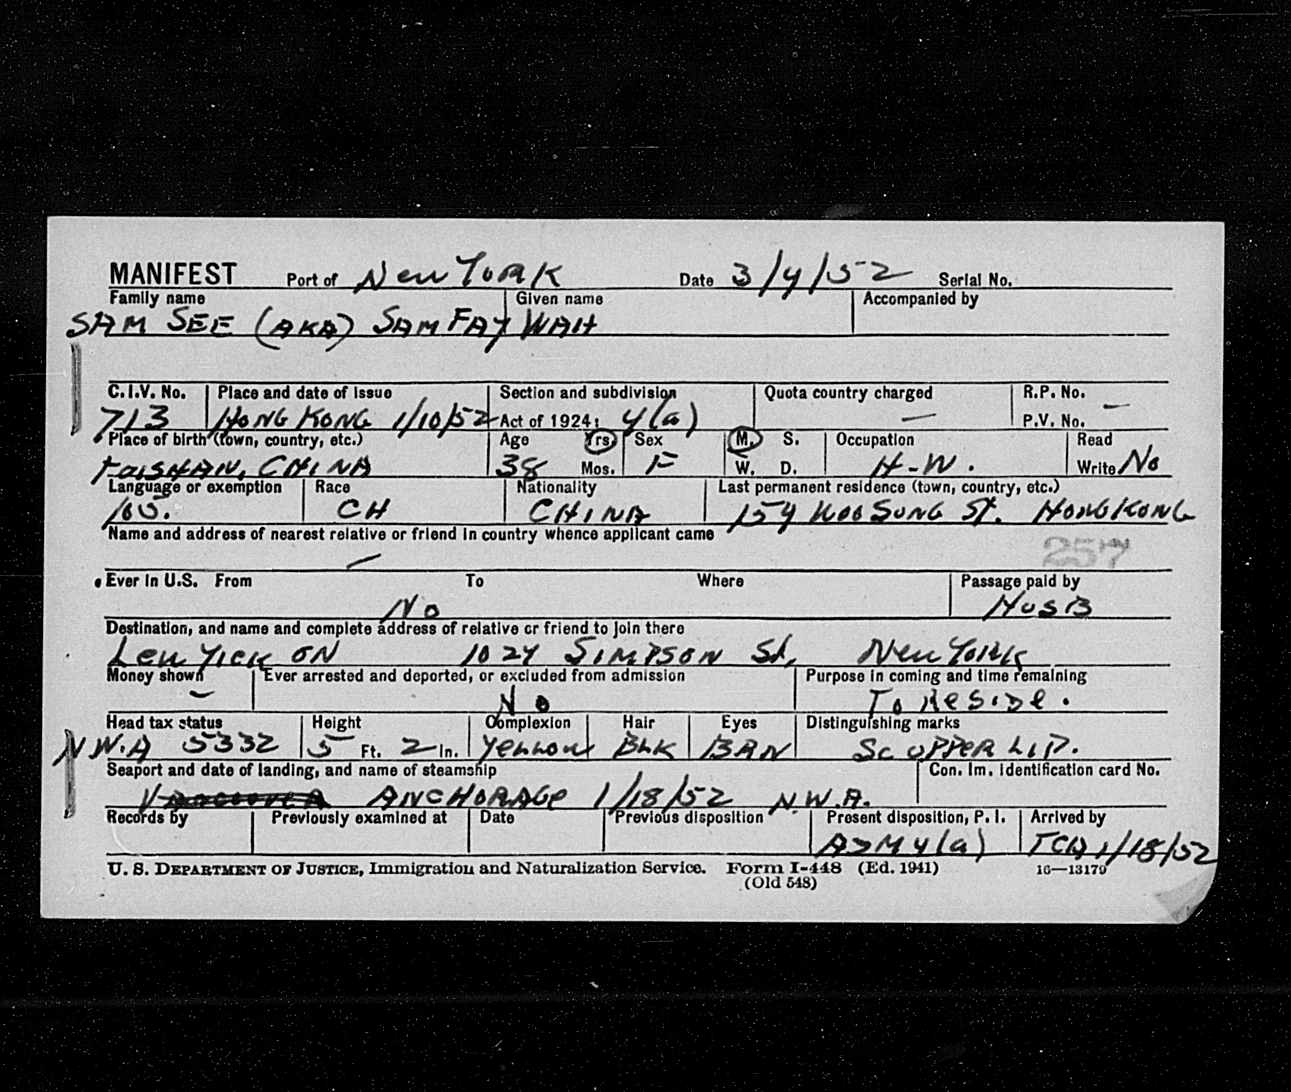 MANIFEST Port of New York Date 3/4/52 Serial No.
Family name Given name Accompanied by
SAM SEE (AKA) SAM FAY WAH
C.I.V. No. Place and date of issue Section and subdivision Quota country charged R.P. No. —
713 HONG KONG 1/10/52 Act of 1924: 4(a) — P.V. No.
Place of birth (town, country, etc.) Age Yrs. Sex M. S. Occupation Read
TOISHAN, CHINA 38 Mos. F W. D. H-W. Write No
Language or exemption Race Nationality Last permanent residence (town, country, etc.)
CH CHINA 154 SUNG St. HONG KONG
Name and address of nearest relative or friend in country whence applicant came
— 257
Ever in U.S. From To Where Passage paid by
No HUSB
Destination, and name and complete address of relative or friend to join there
LEW YICK ON 1024 SIMPSON St, New YORK
Money shown Ever arrested and deported, or excluded from admission Purpose in coming and time remaining
— No To Reside.
Head tax status Height Complexion Hair Eyes Distinguishing marks
N.W.A 5332 5 Ft. 2 In. Yellow BLK BRN SC UPPER LIP.
Seaport and date of landing, and name of steamship Con. Im. Identification card No.
ANCHORAGE 1/18/52 N.W.A.
Records by Previously examined at Date Previous disposition Present disposition, P. I. Arrived by
ADM 4(a) 1/18/52
U. S. DEPARTMENT OF JUSTICE, Immigration and Naturalization Service. Form I-448 (Ed. 1941) 16—13179
(Old 548)